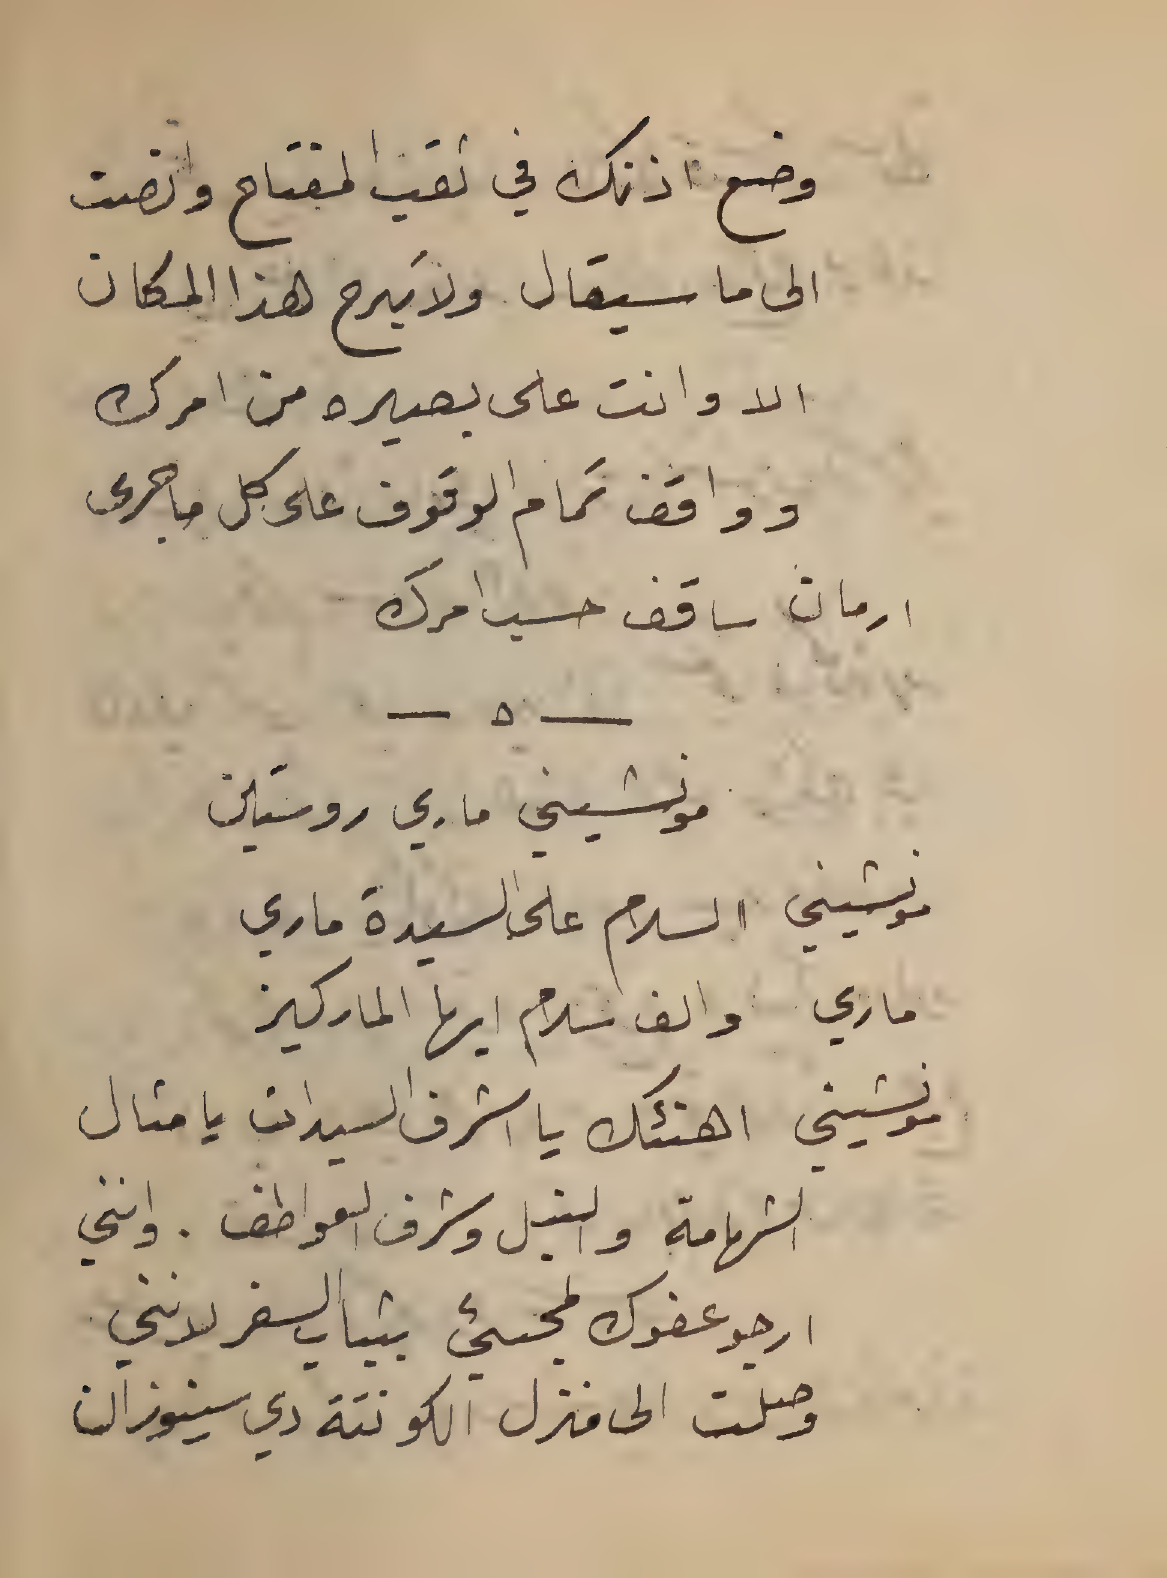 وضع اذنك في ثقب المفتاح وانصت
الى ما سيقال ولا تبرح هذا المكان
الا وانت على بصيره من امرك
وواقف تمام الوقوف على كل ماجرى
ارمان ساقف حسب امرك
— ٥ —
مونشيني ماري روستلن
مونشيني السلام على السيدة ماري
ماري والف سلام ايها الماركيز
مونشيني اهنئك يا اشرف السيدات يا مثال
الشهامة والنبل وشرف العواطف . وانني
ارجو عفوك لمجيئ بثياب السفر لانني
وصلت الى منزل الكونتة دي سينوزان